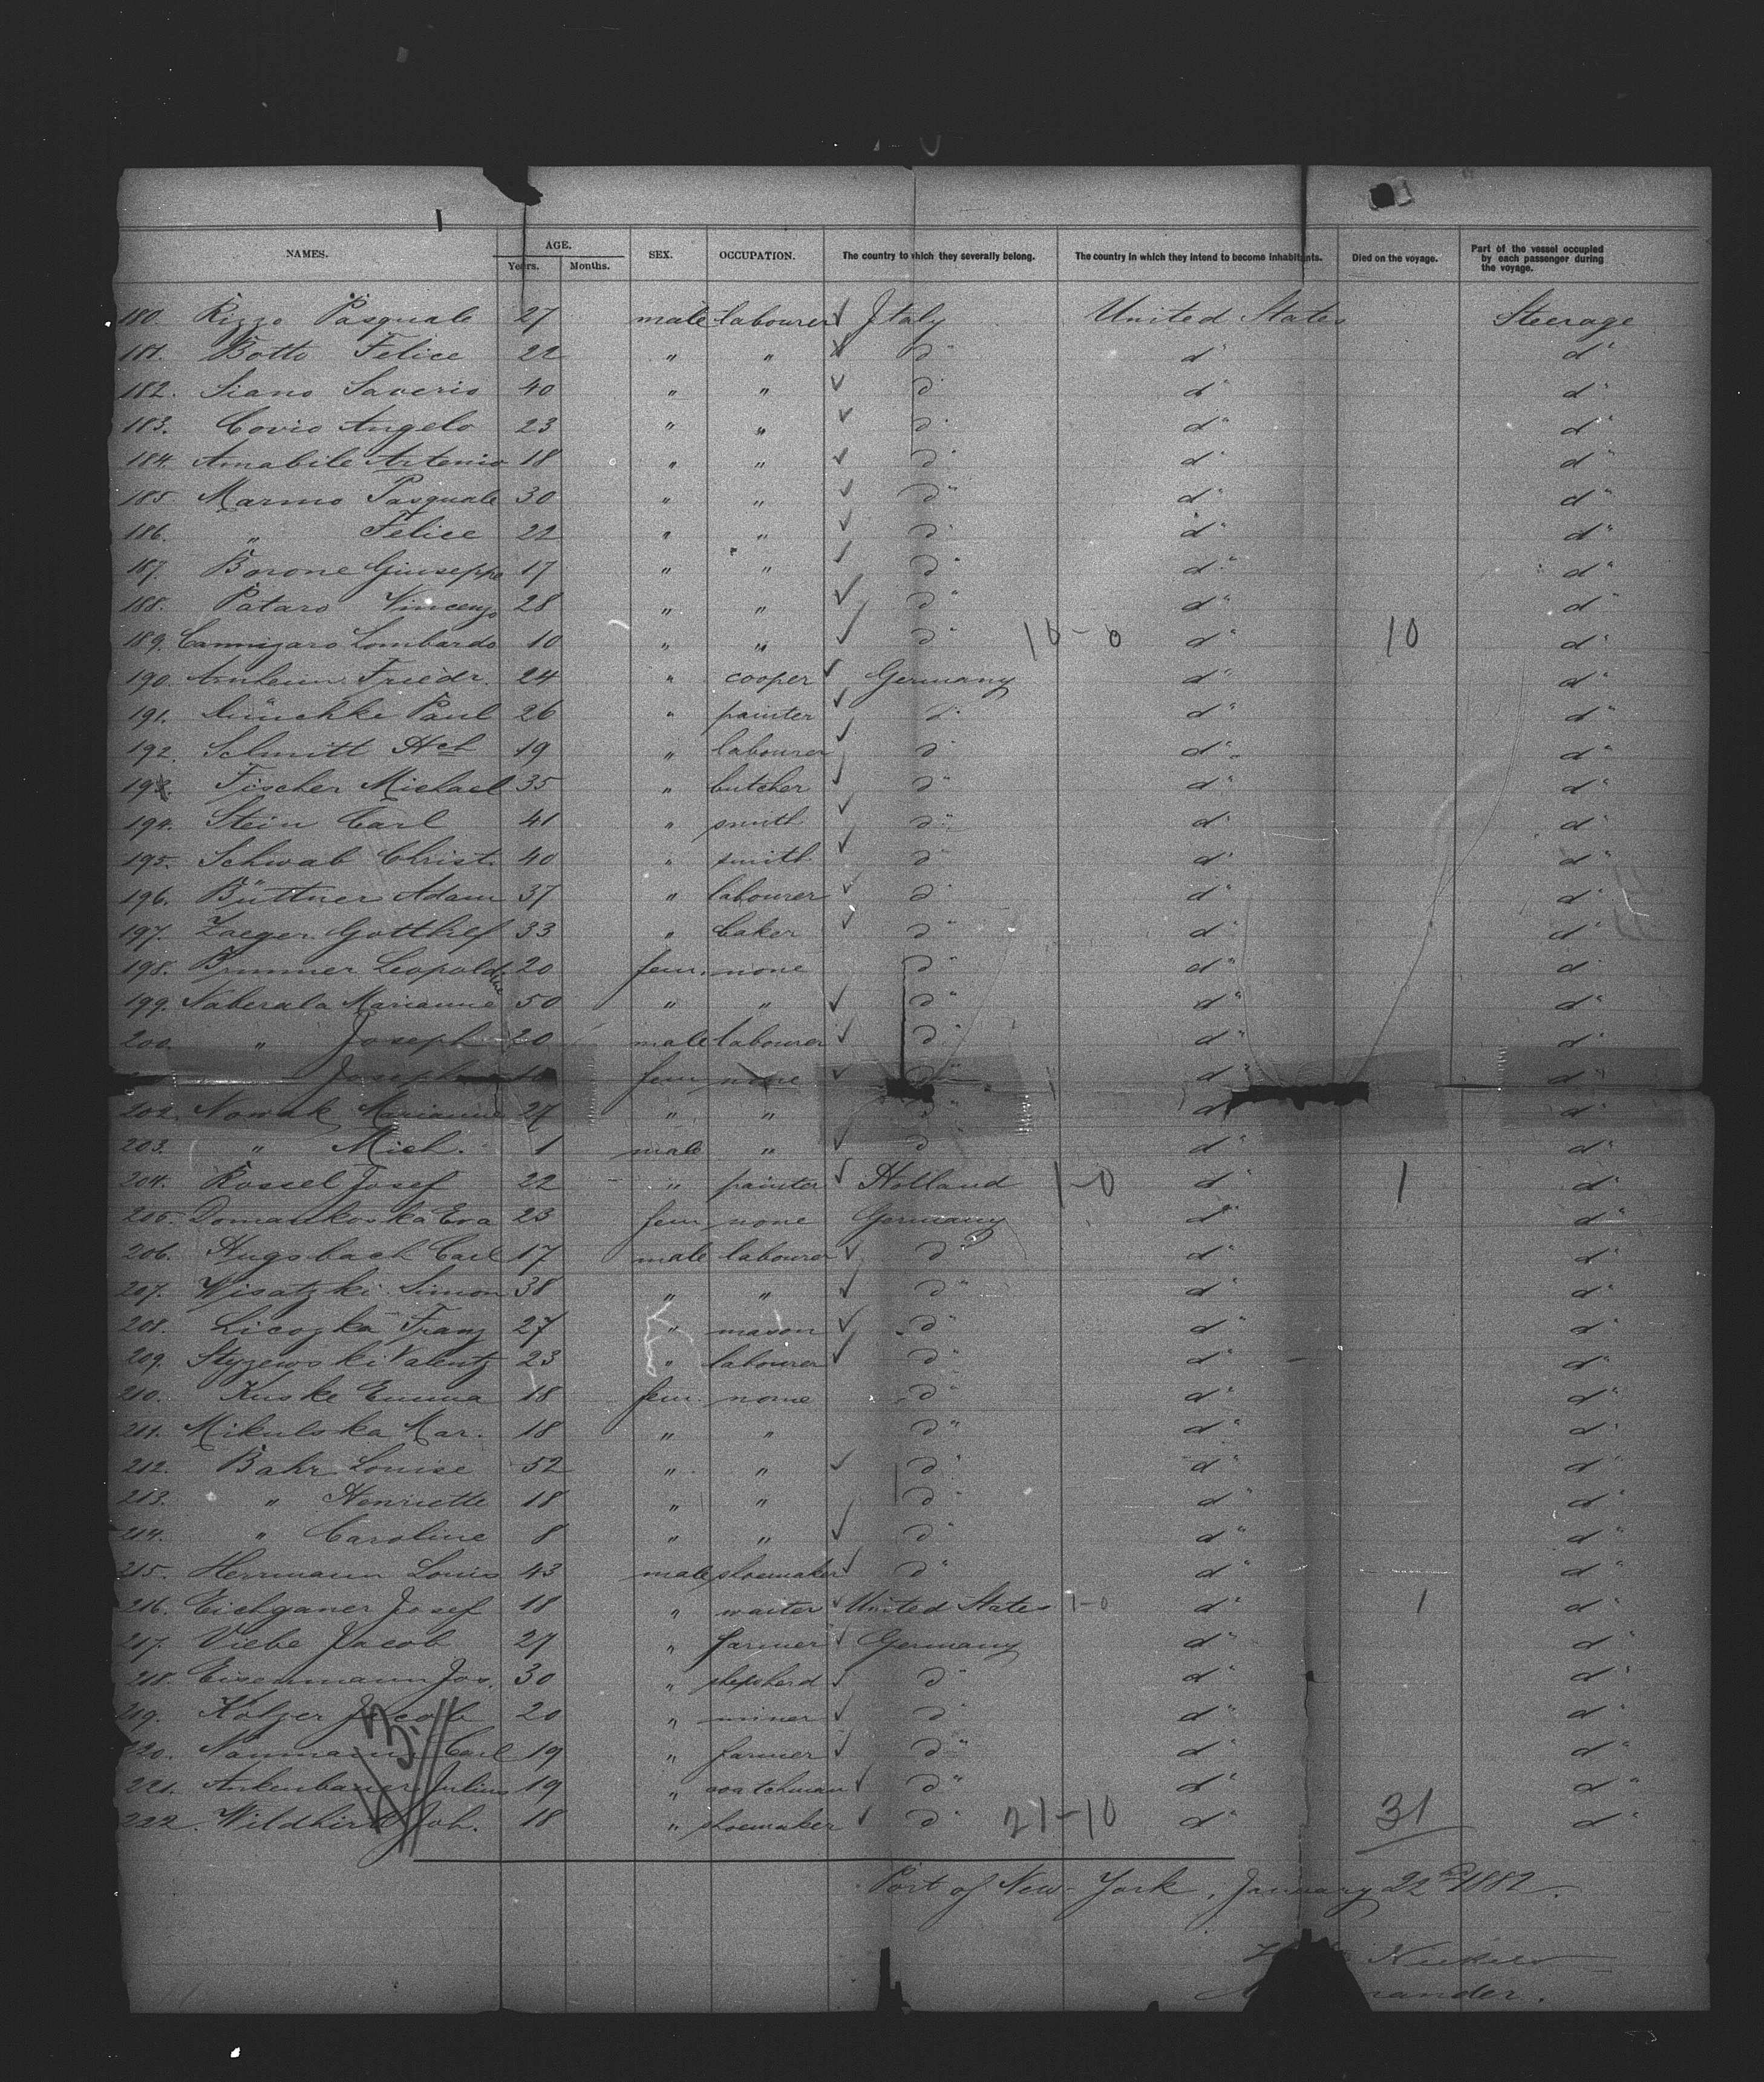 NAMES. AGE. Years. Months. SEX. OCCUPATION. The country to which they severally belong. The country in which they intend to become inhabitants. Died on the voyage. Part of the vessel occupied by each passenger during the voyage.
180. Rizzo Pasquale 27 male labourer ✓ Italy United States Steerage
181. Botto Felice 22 " " ✓ d° d° d°
182. Siano Saverio 40 " " ✓ d° d° d°
183. Covio Angelo 23 " " ✓ d° d° d°
184. Amabile Artenio 18 " " ✓ d° d° d°
185. Marmo Pasquale 30 " " ✓ d° d° d°
186. " Felice 22 " " ✓ d° d° d°
187. Borone Giuseppe 17 " " ✓ d° d° d°
188. Pataro Vincenzo 28 " " ✓ d° d° d°
189. Cannizaro Lombardo 10 " " ✓ d° 10-0 d° 10 d°
190. Arnheim Friedr. 24 " cooper ✓ Germany d° d°
191. Paul 26 " painter ✓ d° d° d°
192. Schmitt Hch 19 " labourer ✓ d° d° d°
193. Fischer Michael 35 " butcher ✓ d° d° d°
194. Stein Carl 41 " smith ✓ d° d° d°
195. Schwab Christ. 40 " smith ✓ d° d° d°
196. Büttner Adam 37 " labourer ✓ d° d° d°
197. Zaeger Gotthlf 33 " baker ✓ d° d° d°
198. Brummer Leopoldine 20 fem. none d° d° d°
199. Naberala Marianne 50 " " ✓ d° d° d°
200. " Joseph 20 male labourer ✓ d° d° d°
fem none ✓ d° d° d°
202. Nowak Marianne 27 " " d° d° d°
203. " Mich. 1 male " ✓ d° d° d°
204. Rossel Josef 22 " painter ✓ Holland 1-0 d° 1 d°
205. Domankoska Eva 23 fem none Germany d° d°
206. Hugsbach Carl 17 male labourer ✓ d° d° d°
207. Wisatzki Simon 38 " " ✓ d° d° d°
208. Licozka Franz 27 " mason ✓ d° d° d°
209. Styzewski Valentz 23 " labourer ✓ d° d° d°
210. Kuske Emma 18 fem. none d° d° d°
211. Mikulska Mar. 18 " " d° d° d°
212. Bahr Louise 52 " " ✓ d° d° d°
213. " Henriette 18 " " d° d° d°
214. " Caroline 8 " " ✓ d° d° d°
215. Herrmann Louis 43 male shoemaker ✓ d° d° d°
216. Eichganer Josef 18 " waiter ✓ United States 1-0 d° 1 d°
217. Viebe Jacob 27 " farmer ✓ Germany d° d°
218. Eisenmann Jos. 30 " shepherd ✓ d° d° d°
219. Kolzer Jacob 20 " miner ✓ d° d° d°
220. Naumann Carl 19 " farmer ✓ d° d° d°
221. Ankenbauer Julius 19 " watchman ✓ d° d° d°
222. Wildhirt Joh. 18 " shoemaker ✓ d° 21-10 d° 31 d°
Port of New-York, January 22nd 1882.